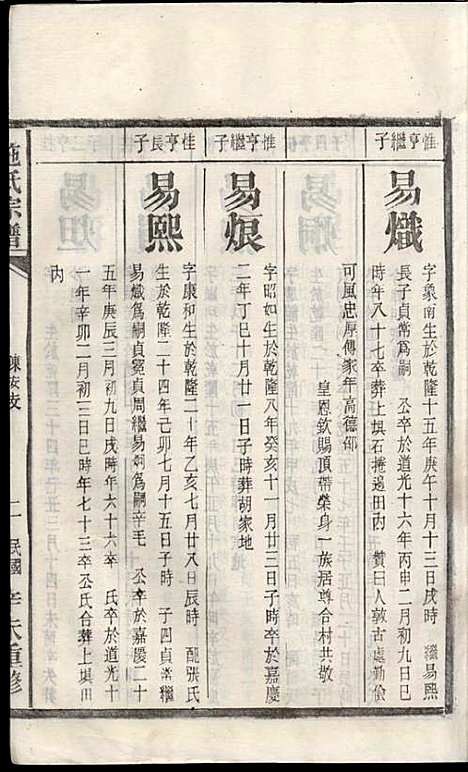 惟亨繼子
易熾
字象南生於乾隆十五年庚午十月十三日戌時 繼易熙
長子貞常爲嗣 公卒於道光十六年丙申二月初九日巳
時年八十七卒葬上塤石捲邊田內 贊曰人敦古處勤儉
可風忠厚傳家年高德邵
皇恩欽賜頂帶榮身一族居尊合村共敬
惟亨繼子
易烺
字昭如生於乾隆八年癸亥十一月廿三日子時卒於嘉慶
二年丁巳十月廿一日子時葬胡家地
桂亨長子
易熙
字康和生於乾隆二十年乙亥七月廿八日辰時 配張氏
生於乾隆二十四年己卯七月十五日子時 子四貞常繼
易熾爲嗣貞冕貞周繼易炯爲嗣辛毛 公卒於嘉慶二十
五年庚辰三月初九日戌時年六十六卒 氏卒於道光十
一年辛卯二月初三日巳時年七十三卒公氏合葬上塤田
內
施氏宗譜
二
民國辛未重修